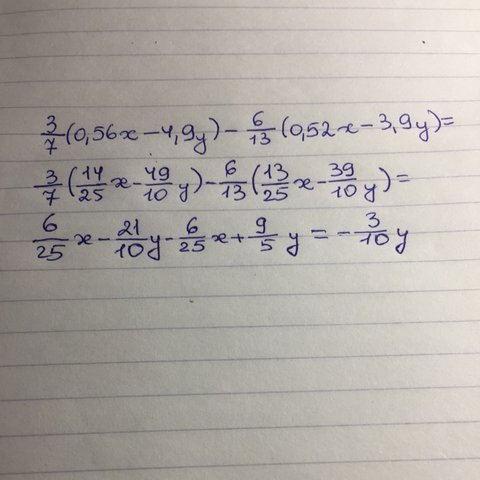 3/7(0,56x-4,9y)-6/13(0,52x-3,9y)=
3/7(14/25x-49/10y)-6/13(13/25x-39/10y)=
6/25x-21/10y-6/25x+9/5y=-3/10y